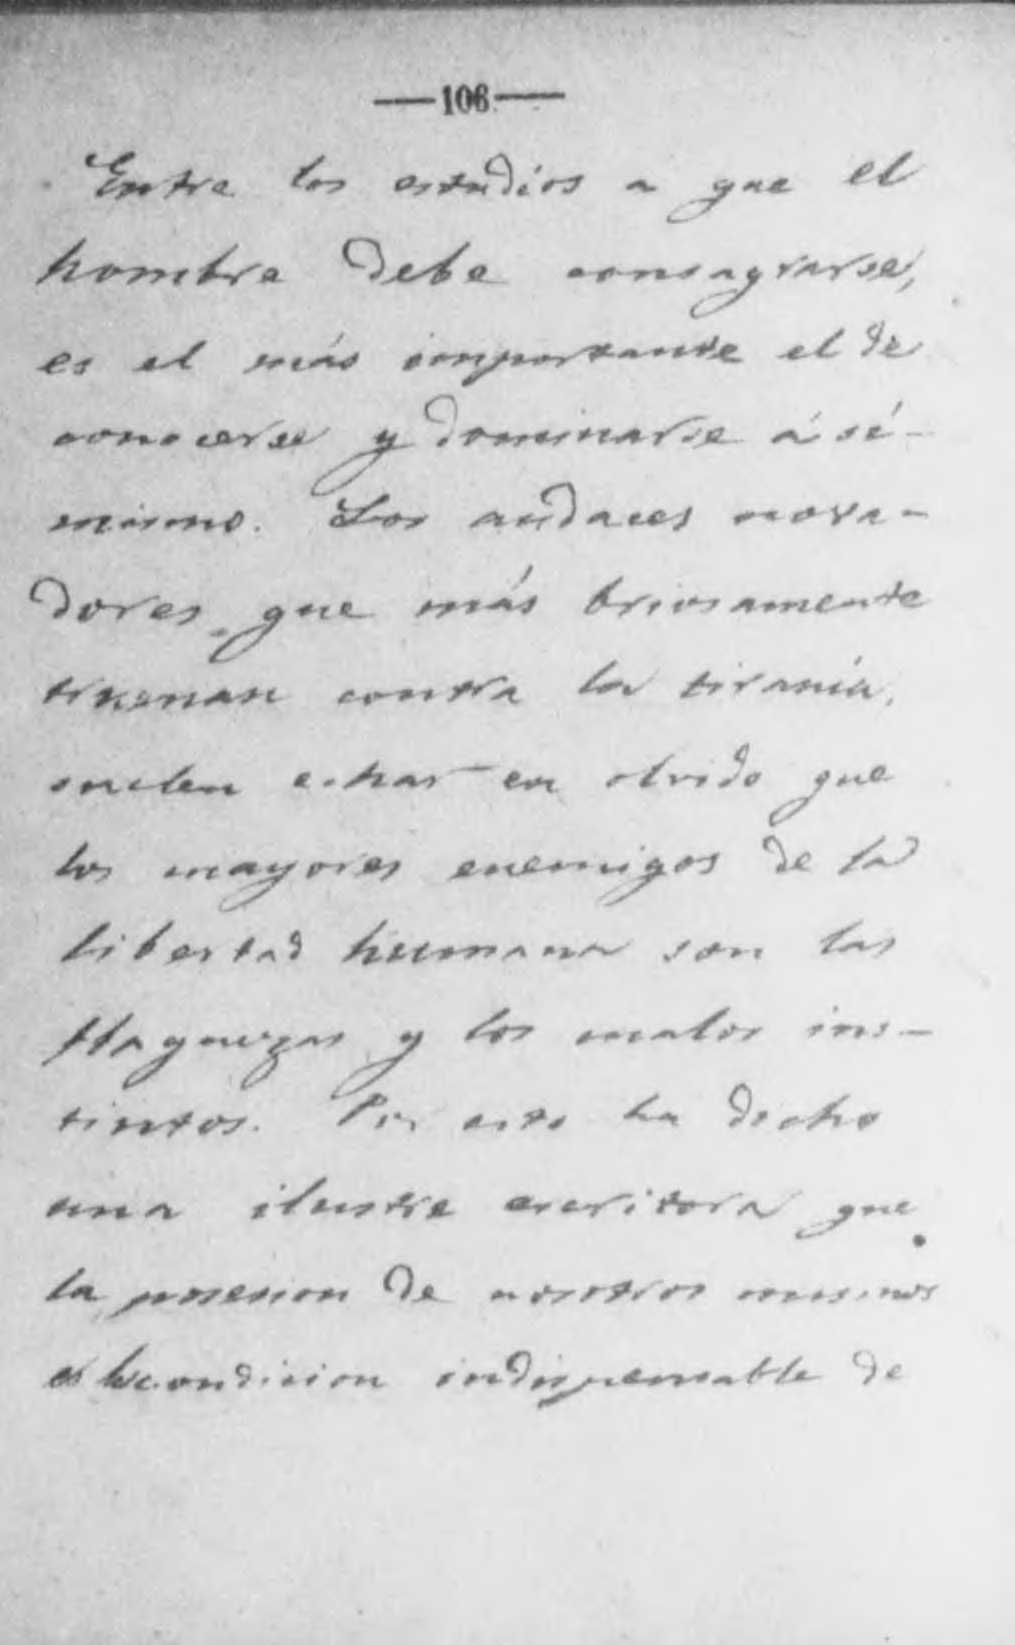 —106—
Entre los estudios a que el
hombre debe consagrarse,
es el más importante el de
conocerse y dominarse á sí-
mismo. Los audaces nova-
dores que más briosamente
truenan contra la tiranía,
suelen echar en olvido que
los mayores enemigos de la
libertad humana son las
flaquezas y los malos ins-
tintos. Por esto ha dicho
una ilustre escritora que
la posesion de nosotros mismos
es la condicion indispensable de